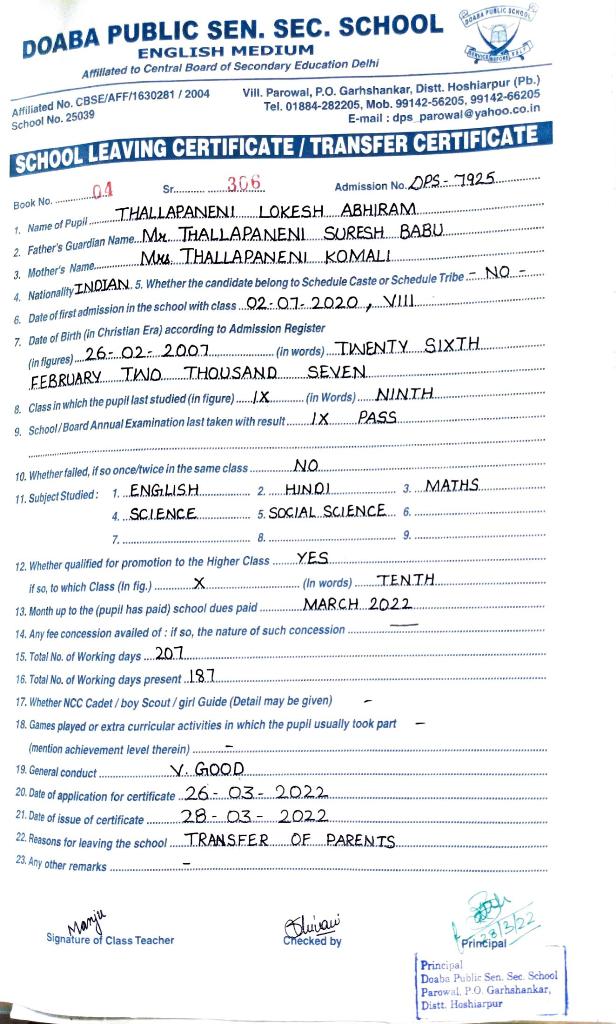 DOABA PUBLIC SEN. SEC. SCHOOL
ENGLISH MEDIUM
Affiliated to Central Board of Secondary Education Delhi
DOABA PUBLIC SCHOOL
Affiliated No. CBSE/AFF/1630281 / 2004
School No. 25039
Vill. Parowal, P.O. Garhshankar, Distt. Hoshiarpur (Pb.)
Tel. 01884-282205, Mob. 99142-56205, 99142-66205
E-mail : dps_parowal@yahoo.co.in
SCHOOL LEAVING CERTIFICATE / TRANSFER CERTIFICATE
Book No. 04 Sr. 306 Admission No. DPS - 7925
1. Name of Pupil THALLAPANENI LOKESH ABHIRAM
2. Father's Guardian Name Mr. THALLAPANENI SURESH BABU
3. Mother's Name Mrs THALLAPANENI KOMALI
4. Nationality INDIAN 5. Whether the candidate belong to Schedule Caste or Schedule Tribe - NO -
6. Date of first admission in the school with class 02-07-2020, VIII
7. Date of Birth (in Christian Era) according to Admission Register
(in figures) 26-02-2007 (in words) TWENTY SIXTH
FEBRUARY TWO THOUSAND SEVEN
8. Class in which the pupil last studied (in figure) IX (in Words) NINTH
9. School/Board Annual Examination last taken with result IX PASS
10. Whether failed, if so once/twice in the same class NO
11. Subject Studied : 1. ENGLISH 2. HINDI 3. MATHS
4. SCIENCE 5. SOCIAL SCIENCE 6.
7. 8. 9.
12. Whether qualified for promotion to the Higher Class YES
if so, to which Class (In fig.) X (In words) TENTH
13. Month up to the (pupil has paid) school dues paid MARCH 2022
14. Any fee concession availed of : if so, the nature of such concession —
15. Total No. of Working days 207
16. Total No. of Working days present 187
17. Whether NCC Cadet / boy Scout / girl Guide (Detail may be given) -
18. Games played or extra curricular activities in which the pupil usually took part -
(mention achievement level therein) -
19. General conduct V. GOOD
20. Date of application for certificate 26-03-2022
21. Date of issue of certificate 28-03-2022
22. Reasons for leaving the school TRANSFER OF PARENTS
23. Any other remarks -
Manju
28/3/22
Signature of Class Teacher Checked by Principal
Principal
Doaba Public Sen. Sec. School
Parowal, P.O. Garhshankar,
Distt. Hoshiarpur